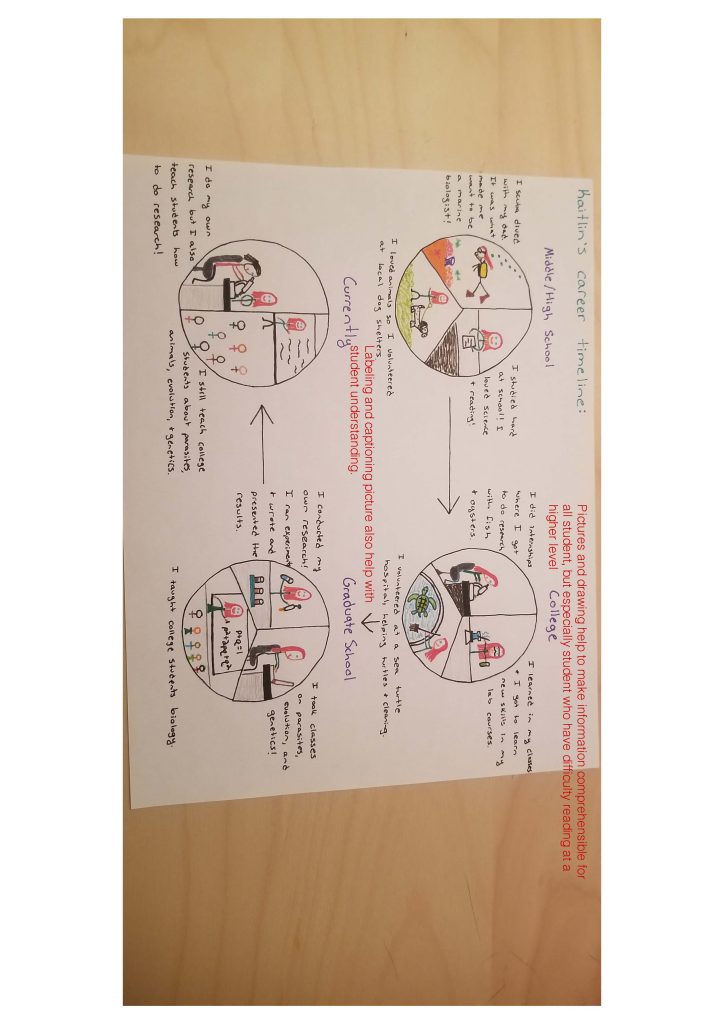 Kaitlin's career timeline:
Pictures and drawing help to make information comprehensible for
all student, but especially student who have difficulty reading at a
higher level
Middle/High School
I scuba dived
with my dad.
It was what
made me
want to be
a marine
biologist!
I studied hard
at school! I
loved science
+ reading!
I loved animals so I volunteered
at local dog shelters
College
I did internships
where I got
to do research
with fish
+ oysters.
I learned in my classes
+ I got to learn
new skills in my
lab courses.
I volunteered at a sea turtle
hospital, helping turtles + cleaning.
Labeling and captioning picture also help with
student understanding.
Currently
I do my own
research but I also
teach students how
to do research!
I still teach college
students about parasites,
animals, evolution, + genetics.
Graduate School
I conducted my
own research!
I ran experiments
+ wrote and
presented the
results.
I took classes
on parasites,
evolution, and
genetics!
p+q=1
p²+2pq+q²
I taught college students biology.